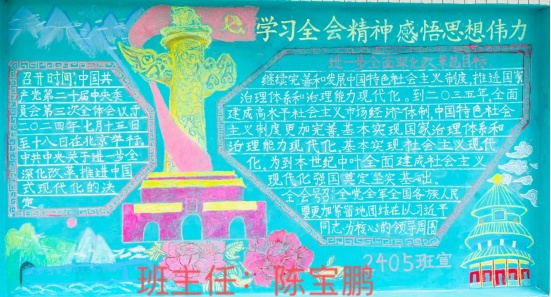 学习全会精神 感悟思想伟力
召开时间:中国共
产党第二十届中央委
员会第三次全体会议于
二〇二四年七月十五日
至十八日在北京举行。
中共中央关于进一步全
面深化改革、推进中国
式现代化的决
定
进一步全面深化改革总目标
继续完善和发展中国特色社会主义制度,推进国家
治理体系和治理能力现代化。到二〇三五年全面
建成高水平社会主义市场经济体制,中国特色社会
主义制度更加完善,基本实现国家治理体系和
治理能力现代化,基本实现社会主义现代
化,为到本世纪中叶全面建成社会主义
现代化强国奠定坚实基础。
全会号召:全党全军全国各族人民
要更加紧密地团结在以习近平
同志为核心的党中央周围
2405班宣
班主任:陈宝鹏